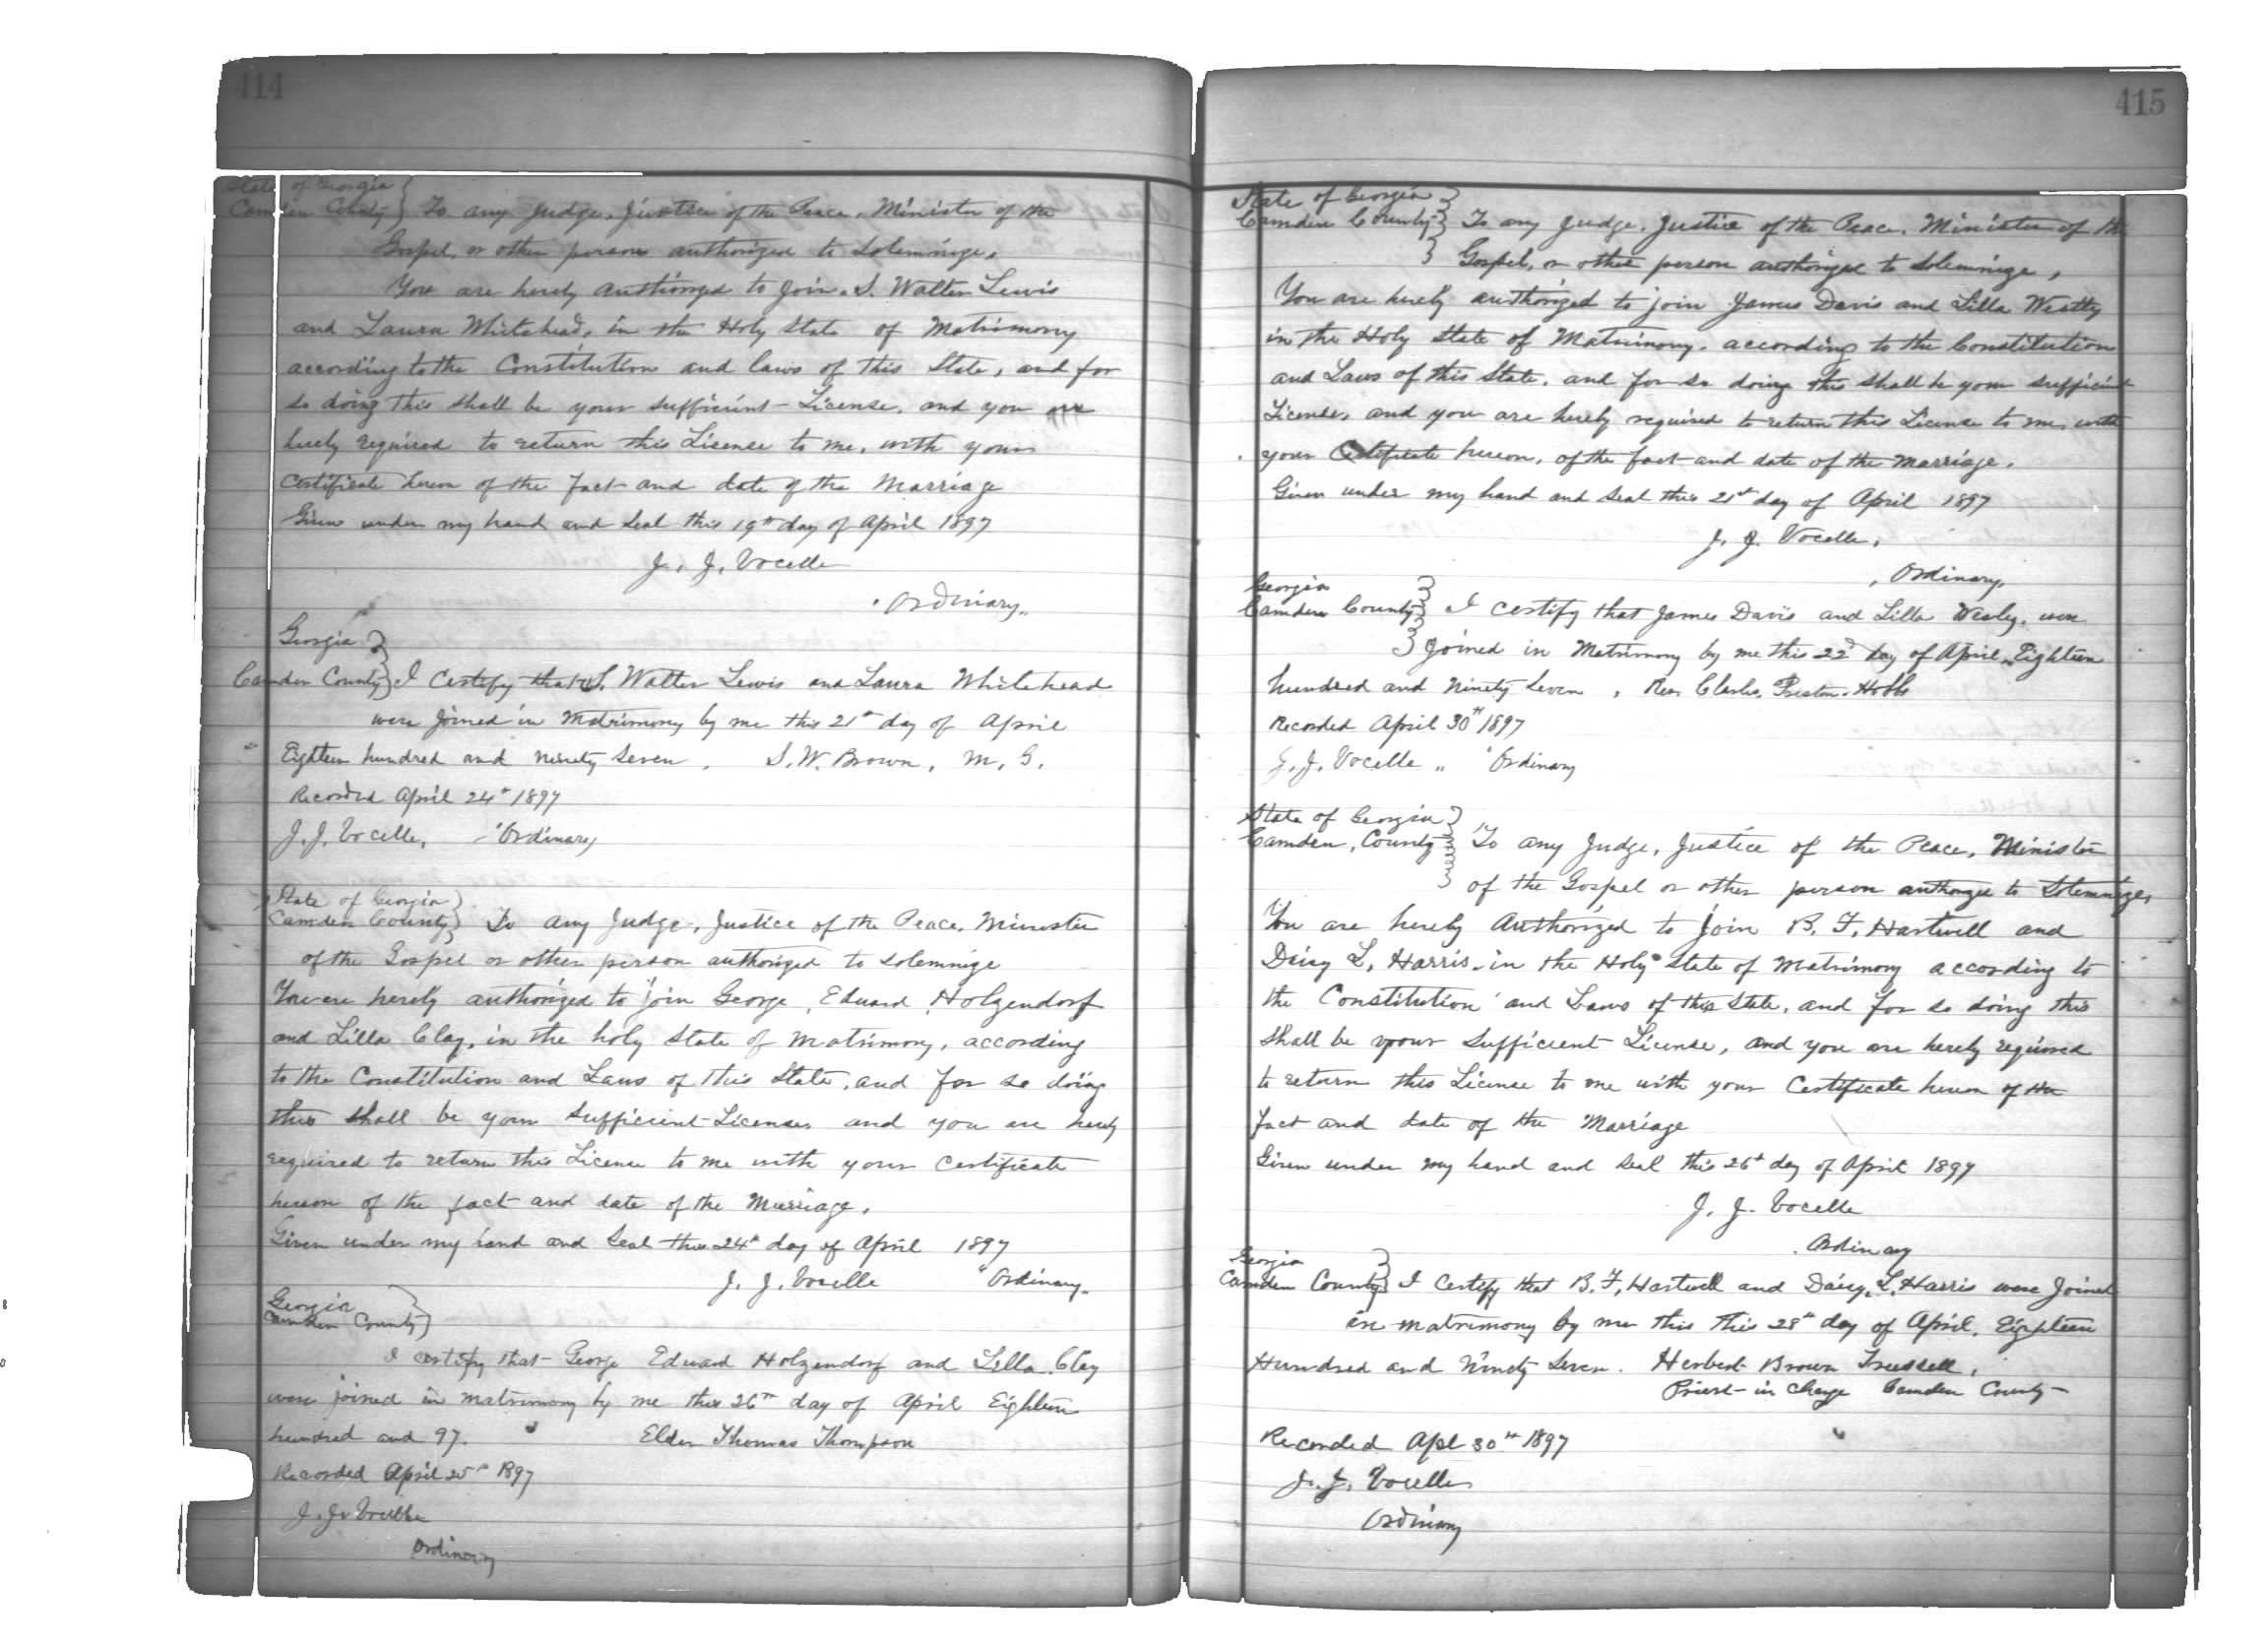 414
State of Georgia
Camden County } To any Judge, Justice of the Peace, Minister of the
Gospel, or other person authorized to Solemnize,
You are hereby authorized to join. S. Walter Lewis
and Laura Whitehead, in the Holy State of Matrimony
according to the Constitution and laws of this State, and for
so doing this shall be your sufficient License, and you are
hereby required to return this License to me, with your
Certificate hereon of the fact and date of the Marriage
Given under my hand and Seal this 19th day of April 1897
J. J. Vocelle
Ordinary.
Georgia
Camden County } I Certify that S. Walter Lewis and Laura Whitehead
were joined in Matrimony by me this 21st day of April
Eighteen hundred and ninety seven. S. W. Brown, M. G.
Recorded April 24th 1897
J. J. Vocelle, Ordinary
State of Georgia
Camden County } To any Judge, Justice of the Peace, Minister
of the Gospel or other person authorized to solemnize
You are hereby authorized to join George, Eduard Holzendorf
and Lilla Clay, in the holy State of Matrimony, according
to the Constitution and Laws of this State, and for so doing
this shall be your Sufficient License and you are hereby
required to return this License to me with your Certificate
hereon of the fact and date of the Marriage.
Given under my hand and Seal this 24th day of April 1897
J. J. Vocelle Ordinary.
Georgia
Camden County }
I certify that George Eduard Holzendorf and Lilla Clay
were joined in matrimony by me this 26th day of April Eighteen
hundred and 97. Elder Thomas Thompson
Recorded April 25th 1897
J. J. Vocelle
Ordinary
415
State of Georgia
Camden County } To any Judge, Justice of the Peace, Minister of the
Gospel, or other person authorized to solemnize,
You are hereby authorized to join James Davis and Lilla Westly
in the Holy State of Matrimony, according to the Constitution
and Laws of this State, and for so doing this shall be your sufficient
License, and you are hereby required to return this License to me, with
your Certificate hereon, of the fact and date of the marriage.
Given under my hand and Seal this 21st day of April 1897
J. J. Vocelle,
Ordinary,
Georgia
Camden County } I certify that James Davis and Lilla Wesley, were
joined in Matrimony by me this 22d day of April, Eighteen
hundred and ninety seven, Rev. Preston Hobbs
Recorded April 30th 1897
J. J. Vocelle " Ordinary
State of Georgia
Camden, County } To any Judge, Justice of the Peace, Minister
of the Gospel or other person authorized to Solemnize,
You are hereby Authorized to join B. F. Hartwell and
Daisy L, Harris in the Holy State of Matrimony according to
the Constitution and Laws of this State, and for so doing this
shall be your Sufficient License, and you are hereby required
to return this License to me with your Certificate hereon of the
fact and date of the Marriage
Given under my hand and Seal this 26th day of April 1897
J. J. Vocelle
Ordinary
Georgia
Camden County } I Certify that B. F, Hartwell and Daisy, L, Harris were Joined
in matrimony by me this this 28th day of April, Eighteen
Hundred and Ninety Seven. Herbert Brown Trussell,
Priest in Charge Camden County
Recorded Apl 30th 1897
J. J. Vocelle
Ordinary